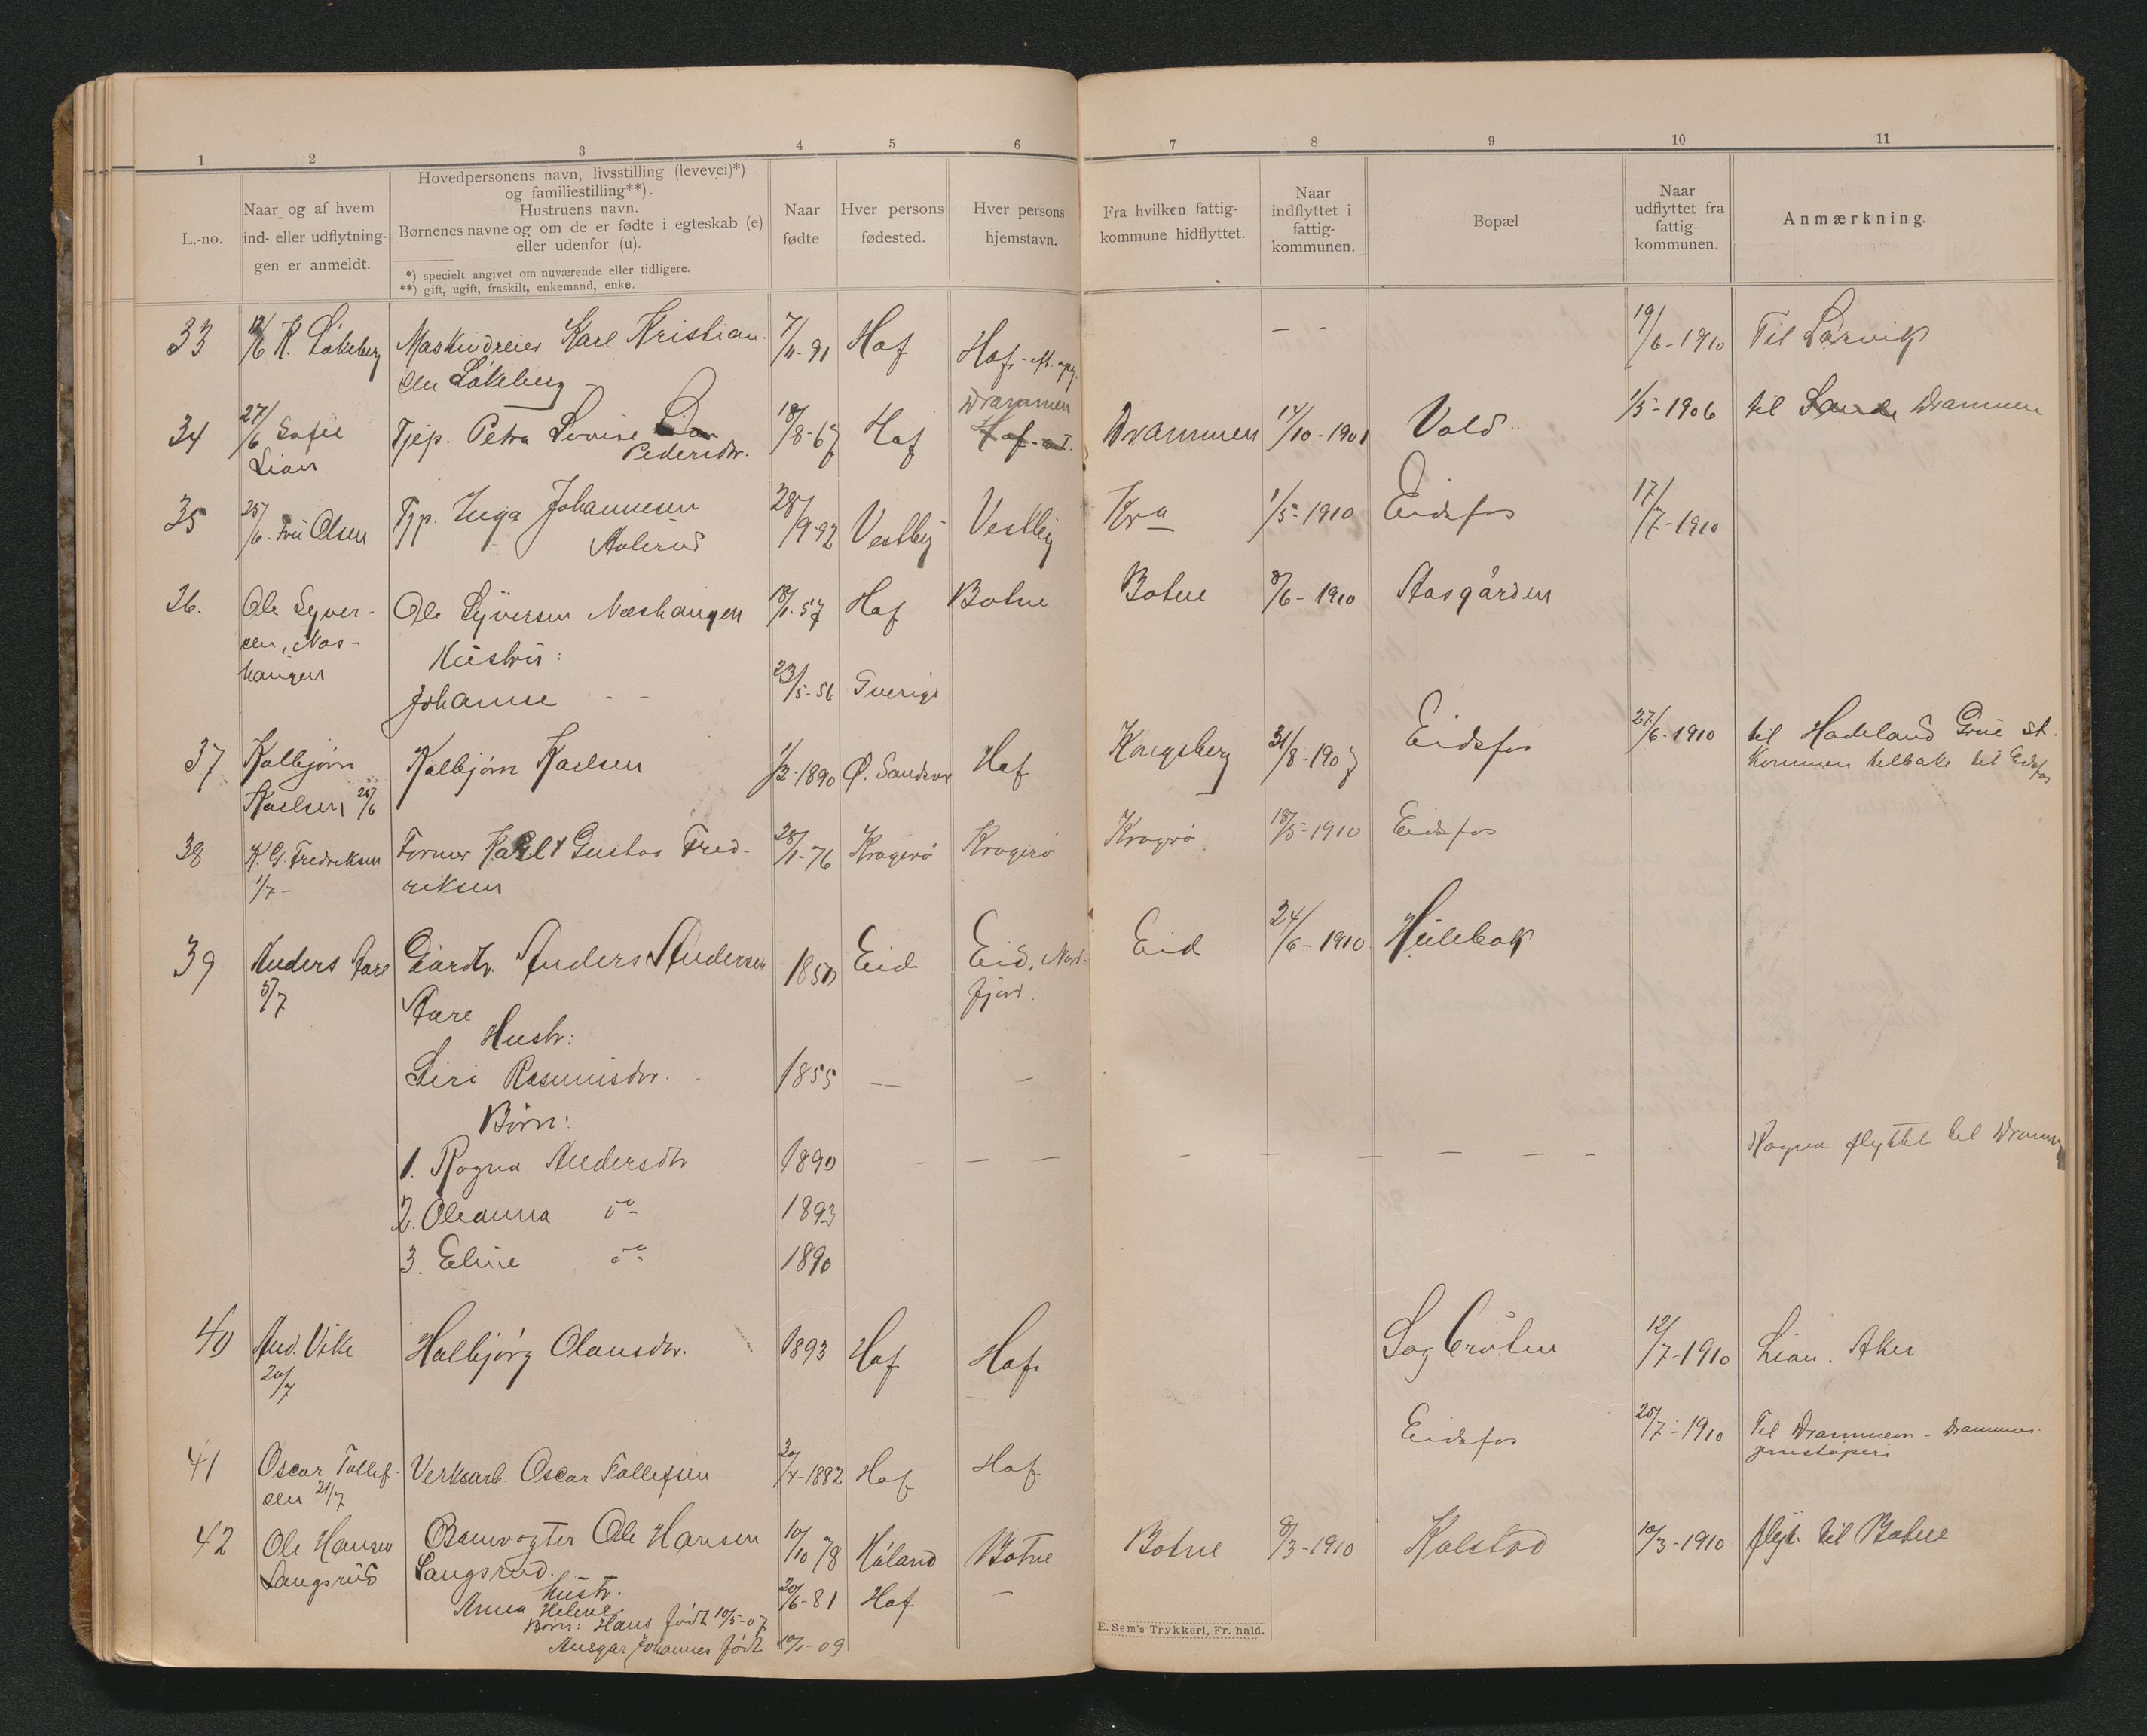 1 2 3 4 5 6 7 8 9 10 11
L.-no.
Naar og af hvem
ind- eller udflytnin-
gen er anmeldt.
Hovedpersonens navn, livsstilling (levevei)*)
og familiestilling**).
Hustruens navn.
Børnenes navne og om de er fødte i egteskab (e)
eller udenfor (u).
*) specielt angivet om nuværende eller tidligere.
**) gift, ugift, fraskilt, enkemand, enke.
Naar
fødte
Hver persons
fødested.
Hver persons
hjemstavn.
Fra hvilken fattig-
kommune hidflyttet.
Naar
indflyttet i
fattig-
kommunen.
Bopæl
Naar
udflyttet fra
fattig-
kommunen.
Anmærkning.
33 K. Løkeberg Maskindreier Karl Kristian- 7/11-91 Hof Hof - - 19/6-1910 Til Larvik
sen Løkeberg
Drammen
34 27/6 Sofie Tjep. Petra Lovise 18/8-67 Hof Drammen 14/10-1901 Vold 1/5-1906 til Sande Drammen
Lian Pedersdtr.
35 25/6. Olsen Tjp. Inga Johannesen 28/9-92 Vestby Vestby Kra 1/5-1910 Eidsfos 17/7-1910
Aalerud
36. Ole Syver- Ole Syversen Næshaugen 57 Hof Botne Botne 8/6-1910 Aasgården
sen, Næs-
haugen Hustru:
Johanne - - 23/5-56 Sverige
37 Kolbjørn Kolbjørn Karlsen 1/2-1890 Ø. Sandsvær Hof Kongsberg 31/8-1907 Eidsfos 27/6-1910 til Hadeland Grue st.
Karlsen 25/6 Kommen tilbake til Eidsfos
38 K. G. Fredriksen Former Karl Gustav Fred- 28/1-76 Kragerø Kragerø Kragerø 18/5-1910 Eidsfos
1/7- riksen
39 Anders Aare Gårdbr. Anders Andersen 1850 Eid Eid, Nord- Eid 24/6-1910 Hillebak
5/7 Aare fjord.
Hustr:
Siri Rasmusdtr. 1855 — —
Børn:
1. Ragna Andersdtr 1890 - - - - - - - - - Ragna flyttet til Drammen
2. Oleanna do 1893
3. Eline do 1890
40 And. Vike Halbjørg Olausdtr. 1893 Hof Hof Sagbråten 12/7-1910 Lian. Aker
20/7
41 Oscar Tollef- Verksarb. Oscar Tollefsen 30/4-1882 Hof Hof Eidsfos 25/7-1910 Til Drammen - Drammens
sen 21/7 jernstøperi
42 Ole Hansen Banevogter Ole Hansen 10/10 78 Høland Botne Botne 8/3-1910 Kolstad 10/3-1910 flyt. til Botne
Langsrud Langsrud.
Hustr.
Anna Helene 20/6-81 Hof —
Børn: Hans født 10/5-07
Ansgar Johannes født 09
E. Sem's Trykkeri, Fr. hald.